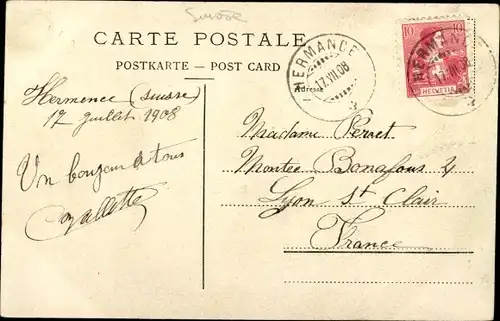 Suisse
CARTE POSTALE
POSTKARTE — POST CARD
Adresse
HERMANCE
17.VII.08
10 10
HELVETIA
HERMANCE
17.VII.08
Hermence (Suisse)
17 Juillet 1908
Un bonjour à tous
Madame Perret
Montée Bonafous 4
Lyon St Clair
France